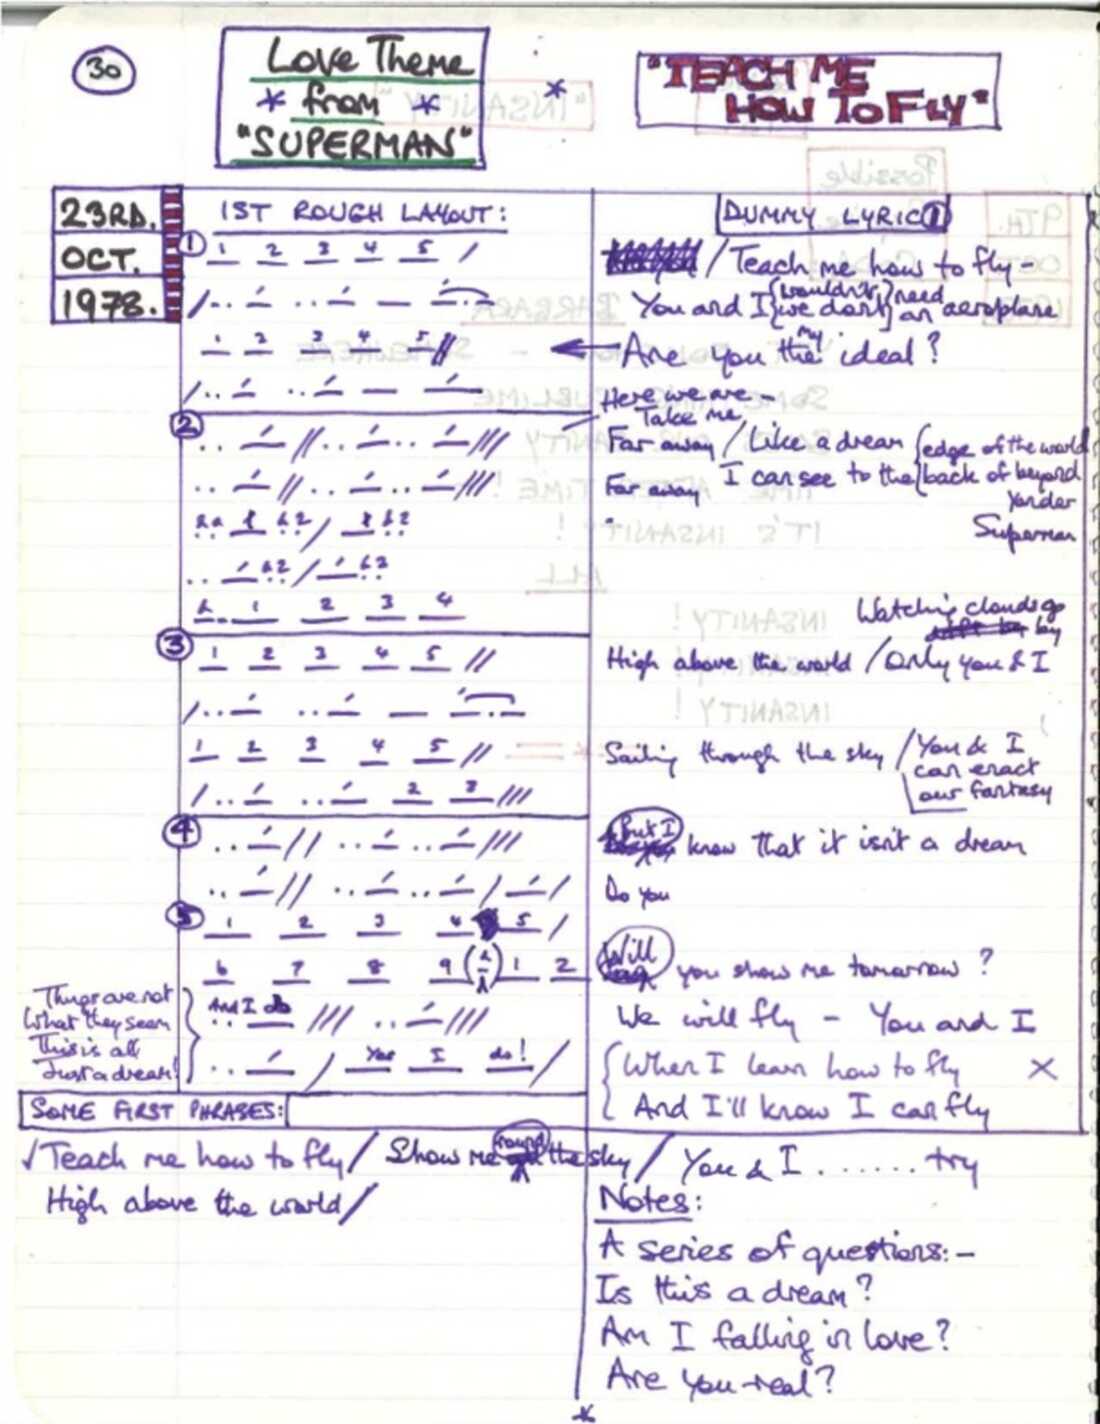 30
Love Theme
* from *
"SUPERMAN"
*
"TEACH ME
HOW TO FLY"
23RD.
OCT.
1978.
1ST ROUGH LAYOUT:
① 1 2 3 4 5 /
1 2 3 4 5 //
②
& 1 2 3 4
③ 1 2 3 4 5 //
1 2 3 4 5 //
2 3 ///
④
⑤ 1 2 3 4 5 /
6 7 8 9 (&) 1 2
And I do
Yes I do!
Things are not
What they seem
This is all
Just a dream!
DUMMY LYRIC ①
/ Teach me how to fly -
You and I {wouldn't / we don't} need an aeroplane
Are you the my ideal?
Here we are -
Take me
Far away / Like a dream {edge of the world
Far away I can see to the {back of beyond
yonder
Superman
Watching clouds go
by
High above the world / Only you & I
Sailing through the sky / You & I
can enact
our fantasy
But I know that it isn't a dream
Do you
Will you show me tomorrow?
We will fly - You and I
When I learn how to fly X
And I'll know I can fly
SOME FIRST PHRASES:
√ Teach me how to fly / Show me round the sky / You & I ....... try
High above the world /
Notes:
A series of questions:-
Is this a dream?
Am I falling in love?
Are you real?
*
"INSANITY"
Possible
9TH.
OCT.
BARBARA
SOMEWHERE
SUBLIME
TIME AFTER TIME!
IT'S INSANITY!
ALL
INSANITY!
INSANITY!
INSANITY!